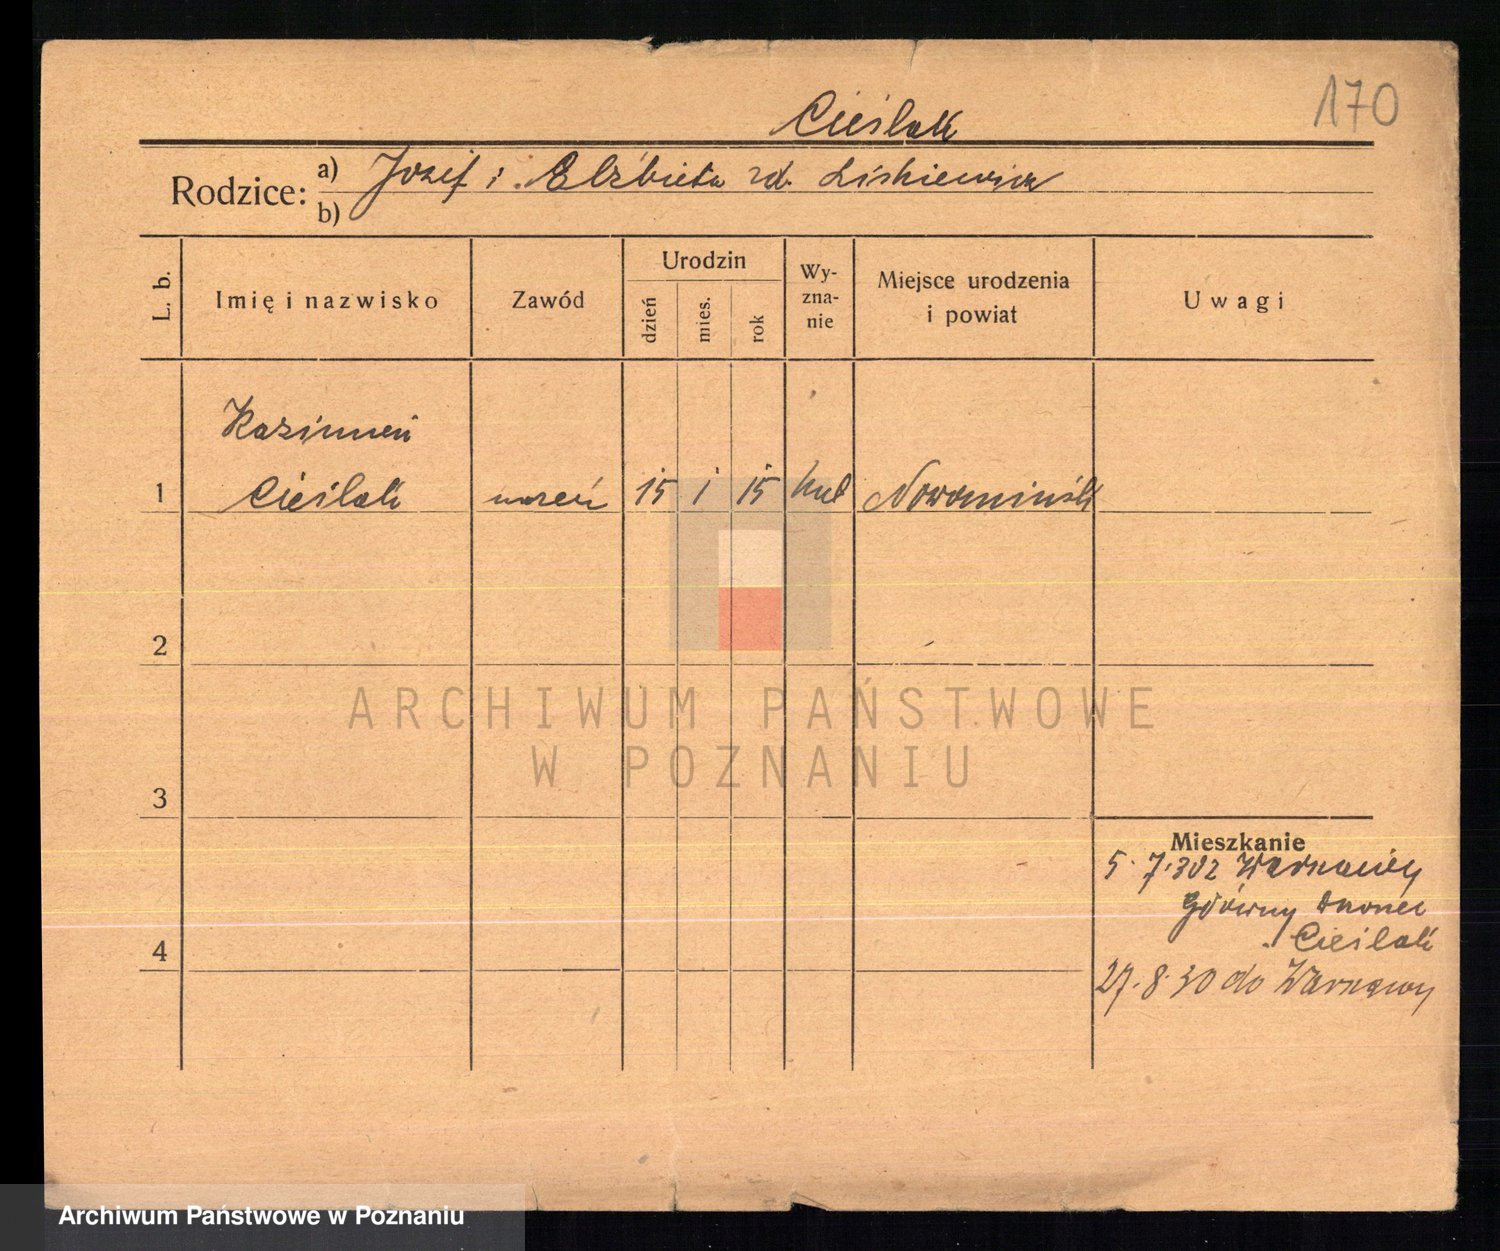 170
Cieślak
Rodzice:
a) Józef i Elżbieta zd. Liśkiewicz
b)
L. b.
Imię i nazwisko
Zawód
Urodzin
dzień
mies.
rok
Wy-
zna-
nie
Miejsce urodzenia
i powiat
Uwagi
Kazimierz
1 Cieślak uczeń 15 1 15 kat Nowomińsk
2
3
4
Mieszkanie
5.7.30 z Warszawy
Główny Dworzec
Cieślak
27.8.30 do Warszawy
ARCHIWUM PAŃSTWOWE
W POZNANIU
Archiwum Państwowe w Poznaniu